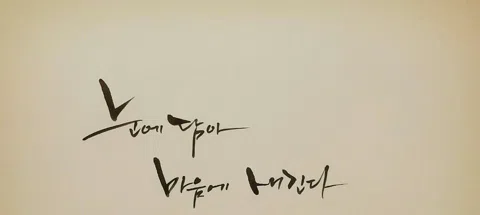 눈에 담아
마음에 새긴다